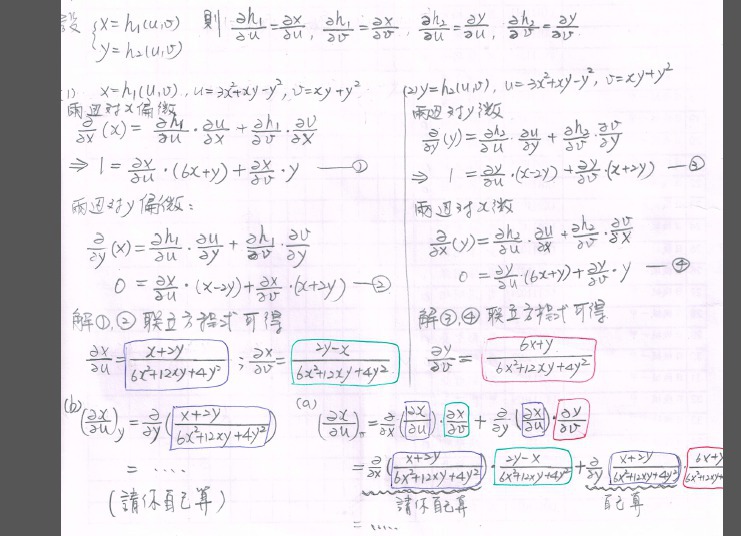 設 { x=h₁(u,v)
y=h₂(u,v)
則 ∂h₁/∂u=∂x/∂u, ∂h₁/∂v=∂x/∂v, ∂h₂/∂u=∂y/∂u, ∂h₂/∂v=∂y/∂v
(1) x=h₁(u,v), u=3x²+xy-y², v=xy+y²
兩邊對x偏微
∂/∂x (x)= ∂h₁/∂u · ∂u/∂x + ∂h₁/∂v · ∂v/∂x
⇒ 1=∂x/∂u · (6x+y)+∂x/∂v · y —①
兩邊對y偏微:
∂/∂y (x)=∂h₁/∂u · ∂u/∂y + ∂h₁/∂v · ∂v/∂y
0=∂x/∂u · (x-2y)+∂x/∂v · (x+2y) —②
解①,② 联立方程式可得
∂x/∂u= (x+2y)/(6x²+12xy+4y²) ; ∂x/∂v= (2y-x)/(6x²+12xy+4y²)
(2) y=h₂(u,v), u=3x²+xy-y², v=xy+y²
兩邊對y微
∂/∂y (y)=∂h₂/∂u · ∂u/∂y + ∂h₂/∂v · ∂v/∂y
⇒ 1=∂y/∂u · (x-2y)+∂y/∂v · (x+2y) —③
兩邊對x微
∂/∂x (y)=∂h₂/∂u · ∂u/∂x + ∂h₂/∂v · ∂v/∂x
0=∂y/∂u · (6x+y)+∂y/∂v · y —④
解③,④ 联立方程式可得
∂y/∂v= (6x+y)/(6x²+12xy+4y²)
(b) (∂x/∂u)y=∂/∂y ((x+2y)/(6x²+12xy+4y²))
= ....
(請你自己算)
(a) (∂x/∂u) =∂/∂x (∂x/∂u) · ∂x/∂v + ∂/∂y (∂x/∂u) · ∂y/∂v
=∂/∂x ((x+2y)/(6x²+12xy+4y²)) · (2y-x)/(6x²+12xy+4y²) +∂/∂y ((x+2y)/(6x²+12xy+4y²)) · (6x+y)/(6x²+12xy+
請你自己算 自己算
= .....